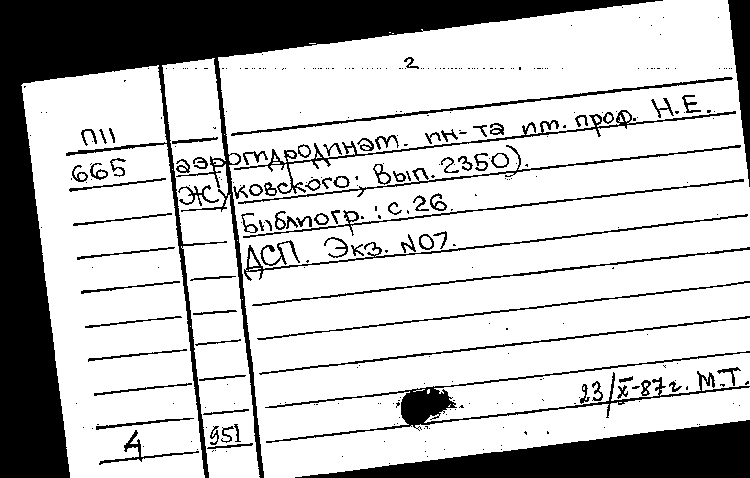 2
П11
665 аэрогидродинам. ин-та им. проф. Н.Е.
Жуковского; Вып. 2350).
Библиогр.: с. 26.
ДСП. Экз. №07.
23/X-87г. М.Т.
4 951